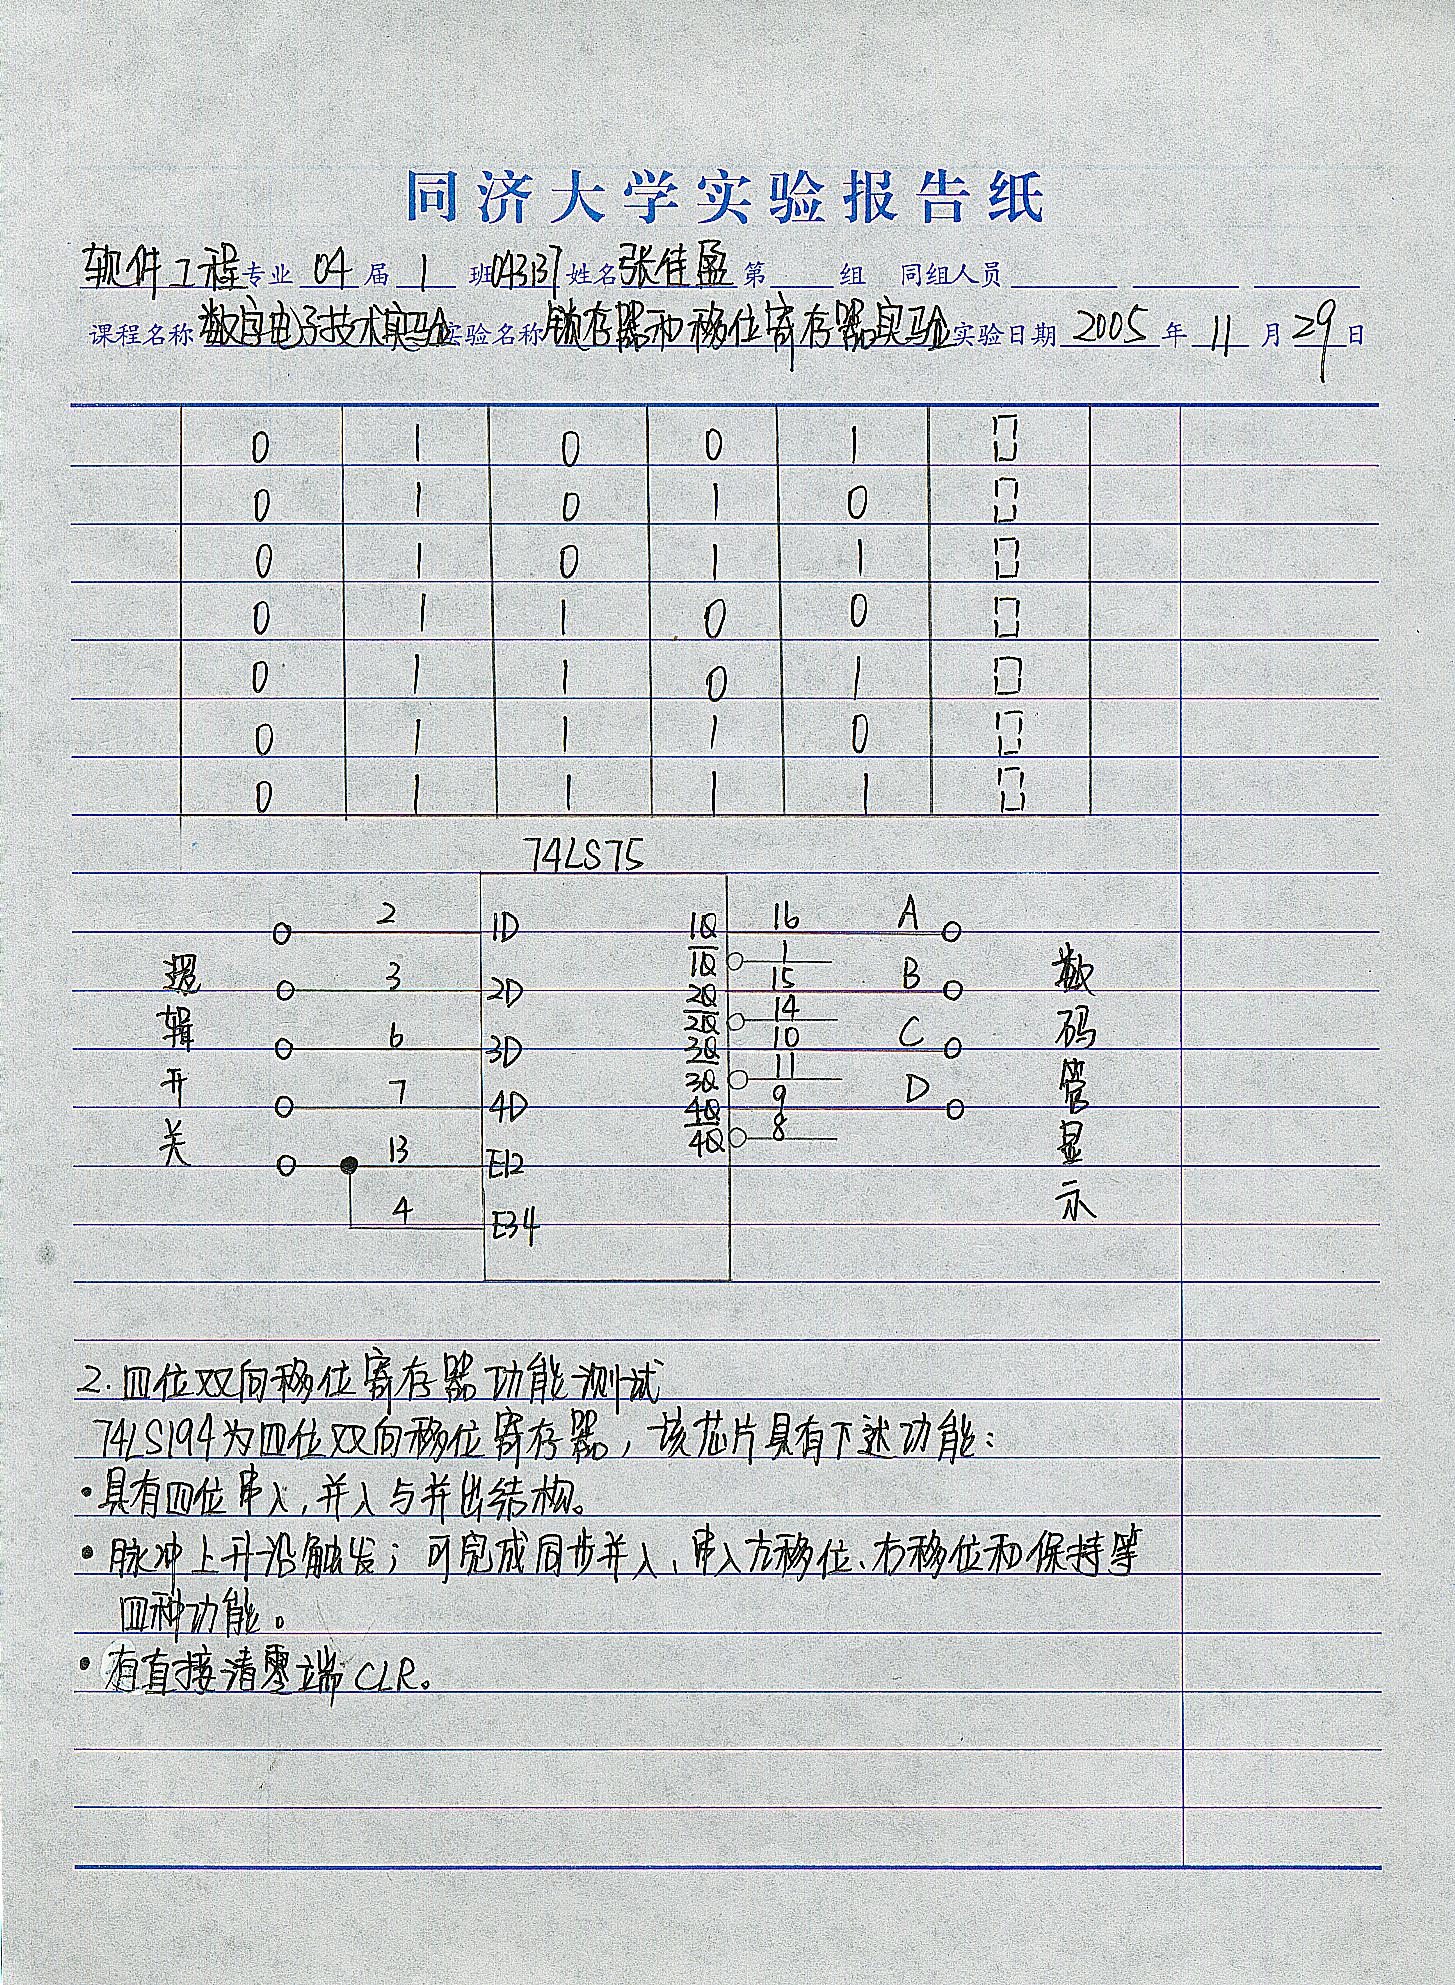 同济大学实验报告纸
软件工程专业 04 届 1 班 043137 姓名 张佳盈 第 组 同组人员
课程名称 数字电子技术实验 实验名称 锁存器和移位寄存器实验 实验日期 2005 年 11 月 29 日
0 1 0 0 1
0 1 0 1 0
0 1 0 1 1
0 1 1 0 0
0 1 1 0 1
0 1 1 1 0
0 1 1 1 1
74LS75
2 1D 1Q 16 A
1Q 1
3 2D 2Q 15 B
2Q 14
6 3D 3Q 10 C
3Q 11
7 4D 4Q 9 D
4Q 8
13 E12
4 E34
逻辑开关
数码管显示
2. 四位双向移位寄存器功能测试
74LS194为四位双向移位寄存器，该芯片具有下述功能：
•具有四位串入，并入与并出结构。
•脉冲上升沿触发；可完成同步并入、串入左移位、右移位和保持等
四种功能。
•有直接清零端CLR。